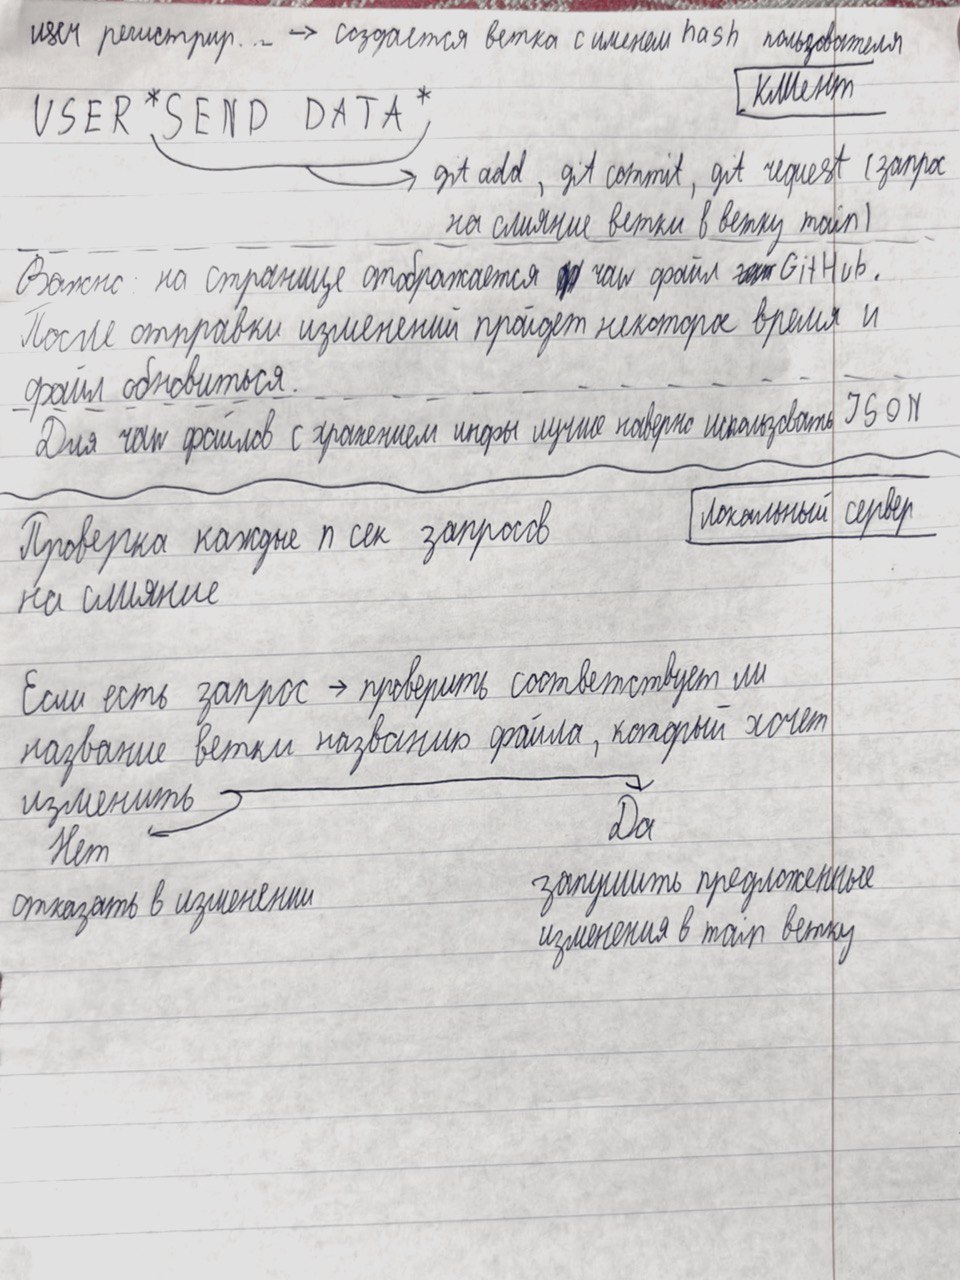 user регистрир... → создается ветка с именем hash пользователя
Клиент
USER *SEND DATA*
git add, git commit, git request (запрос
на слияние ветки в ветку main)
Важно: на странице отображается raw файл GitHub.
После отправки изменений пройдет некоторое время и
файл обновиться.
Для raw файлов с хранением инфы лучше наверно использовать JSON
Локальный сервер
Проверка каждые n сек запросов
на слияние
Если есть запрос → проверить соответствует ли
название ветки названию файла, который хочет
изменить
Нет
Да
отказать в изменении
запушить предложенные
изменения в main ветку